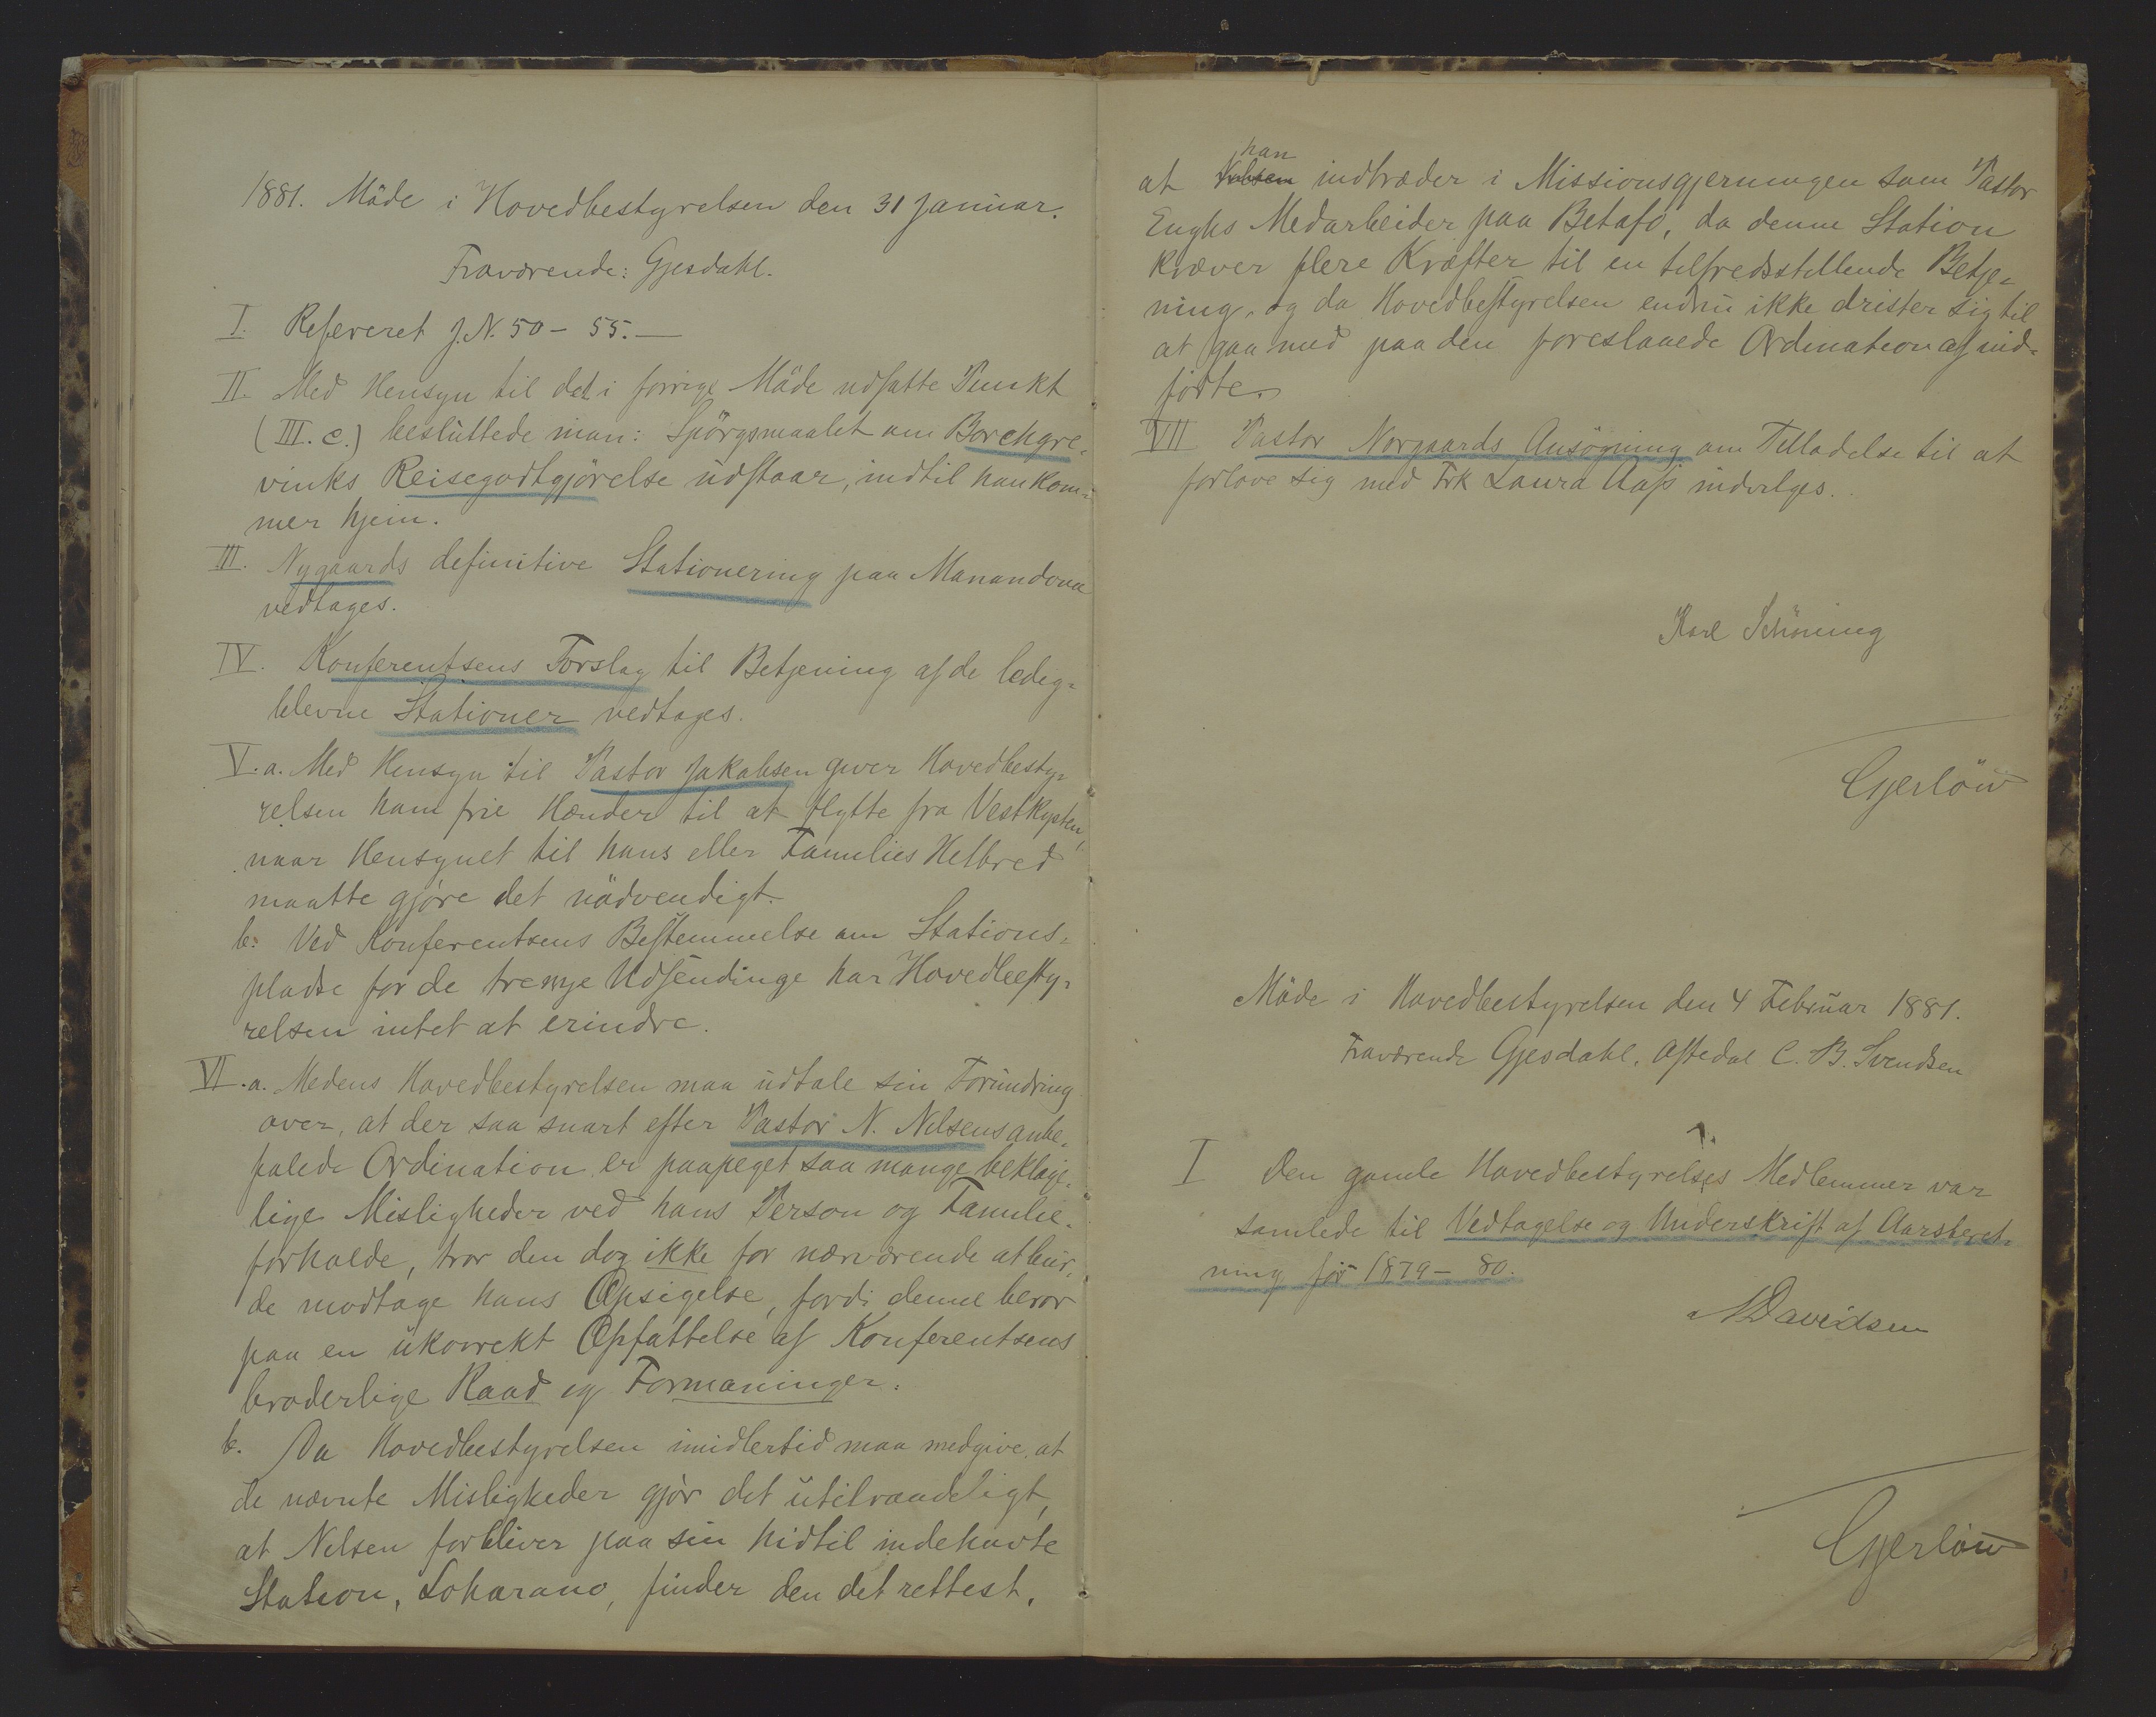 1881. Möde i Hovedbestyrelsen den 31 Januar.
Fraværende: Gjesdahl.
I. Refereret J.N. 50 - 55. —
II. Med Hensyn til det i forrige Möde udsatte Punkt
(III. c.) besluttede man: Spörgsmaalet om Borchgre-
vinks Reisegodtgjörelse udstaar, indtil han kom-
mer hjem.
III. Nygaards definitive Stationering paa Manandona
vedtages.
IV. Konferentsens Forslag til Betjening af de ledig-
blevne Stationer vedtages.
V. a. Med Hensyn til Pastor Jakobsen giver Hovedbesty-
relsen ham frie Hænder til at flytte fra Vestkysten,
naar Hensynet til hans eller Families Helbred
maatte gjöre det nödvendigt.
b. Ved Konferentsens Bestemmelse om Stations-
pladse for de tre nye Udsendinge har Hovedbesty-
relsen intet at erindre.
VI. a. Medens Hovedbestyrelsen maa udtale sin Forundring
over, at der saa snart efter Pastor N. Nilsens anbe-
falede Ordination er paapeget saa mange beklage-
lige Misligheder ved hans Person og Familie-
forholde, tror den dog ikke for nærværende at bur-
de modtage hans Opsigelse, fordi denne beror
paa en ukorrekt Opfattelse af Konferentsens
broderlige Raad og Formaninger.
b. Da Hovedbestyrelsen imidlertid maa medgive, at
de nævnte Misligheder gjör det utilraadeligt,
at Nilsen forbliver paa sin hidtil indehavte
Station, Loharano, finder den det rettest,
han
at Nilsen indtræder i Missionsgjerningen som Pastor
Enghs Medarbeider paa Betafo, da denne Station
kræver flere Kræfter til en tilfredsstillende Betje-
ning, og da Hovedbestyrelsen endnu ikke drister sig til
at gaa med paa den foreslaaede Ordination af ind-
födte.
VII Pastor Norgaards Ansögning om Tilladelse til at
forlove sig med Frk Laura Aass indvilges.
Karl Schöning
Gjerlöw
Möde i Hovedbestyrelsen den 4 Februar 1881.
Fraværende Gjesdahl, Aftedal C. B. Svendsen
I Den gamle Hovedbestyrelses Medlemmer var
samlede til Vedtagelse og Underskrift af Aarsberet-
ning for 1879 - 80.
Davidsen
Gjerlöw